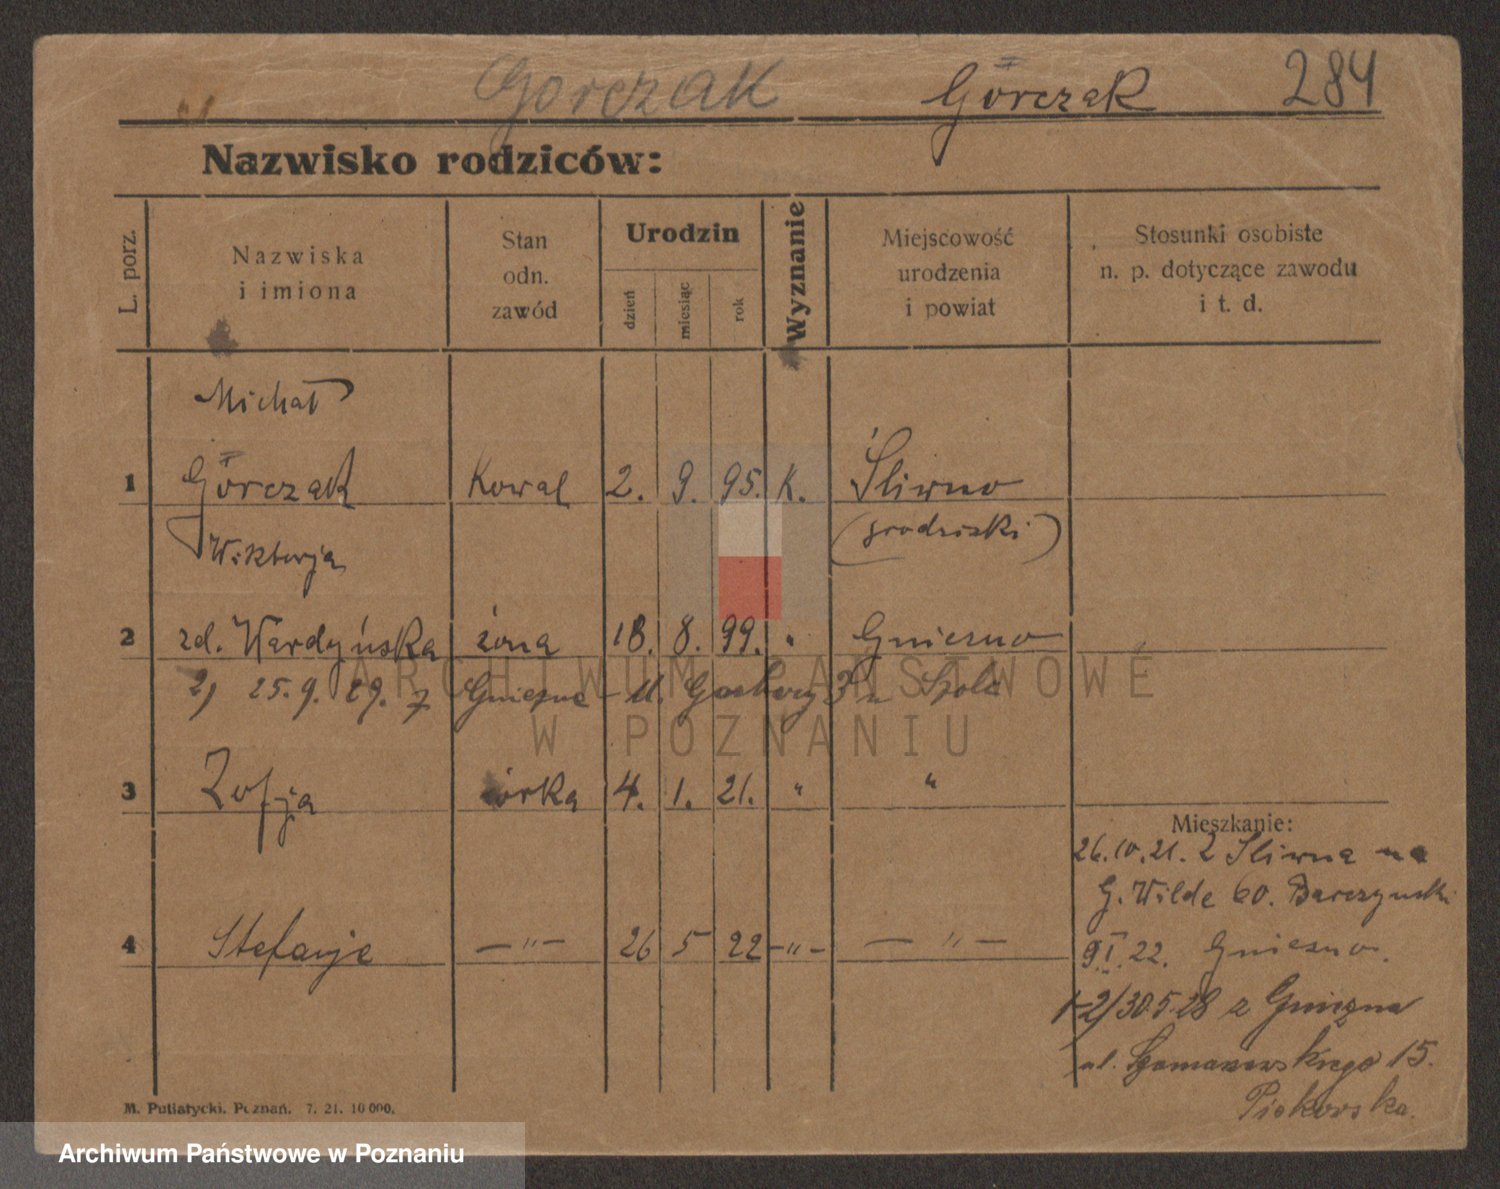 Gorczak Górczak 284
Nazwisko rodziców:
L. porz.
Nazwiska
i imiona
Stan
odn.
zawód
Urodzin
dzień
miesiąc
rok
Wyznanie
Miejscowość
urodzenia
i powiat
Stosunki osobiste
n. p. dotyczące zawodu
i t. d.
Michał
1 Górczak Kowal 2. 9. 95. K. Śliwno
(grodziski)
Wiktorja
2 zd. Wardyńska żona 18. 8. 99. " Gniezno
2) 25.9.29. z Gniezna
3 Zofja córka 4. 1. 21. " "
Mieszkanie:
26.10.21. z Śliwna na
G. Wilde 60. Barczyński
4 Stefanje —"— 26 5 22 —"— —"—
9.I.22. Gniezno.
1-2/30.5.28 z Gniezna
ul. 15.
Piekorska.
M. Putiatycki. Poznań. 7. 21. 10 000.
ARCHIWUM PAŃSTWOWE
W POZNANIU
Archiwum Państwowe w Poznaniu